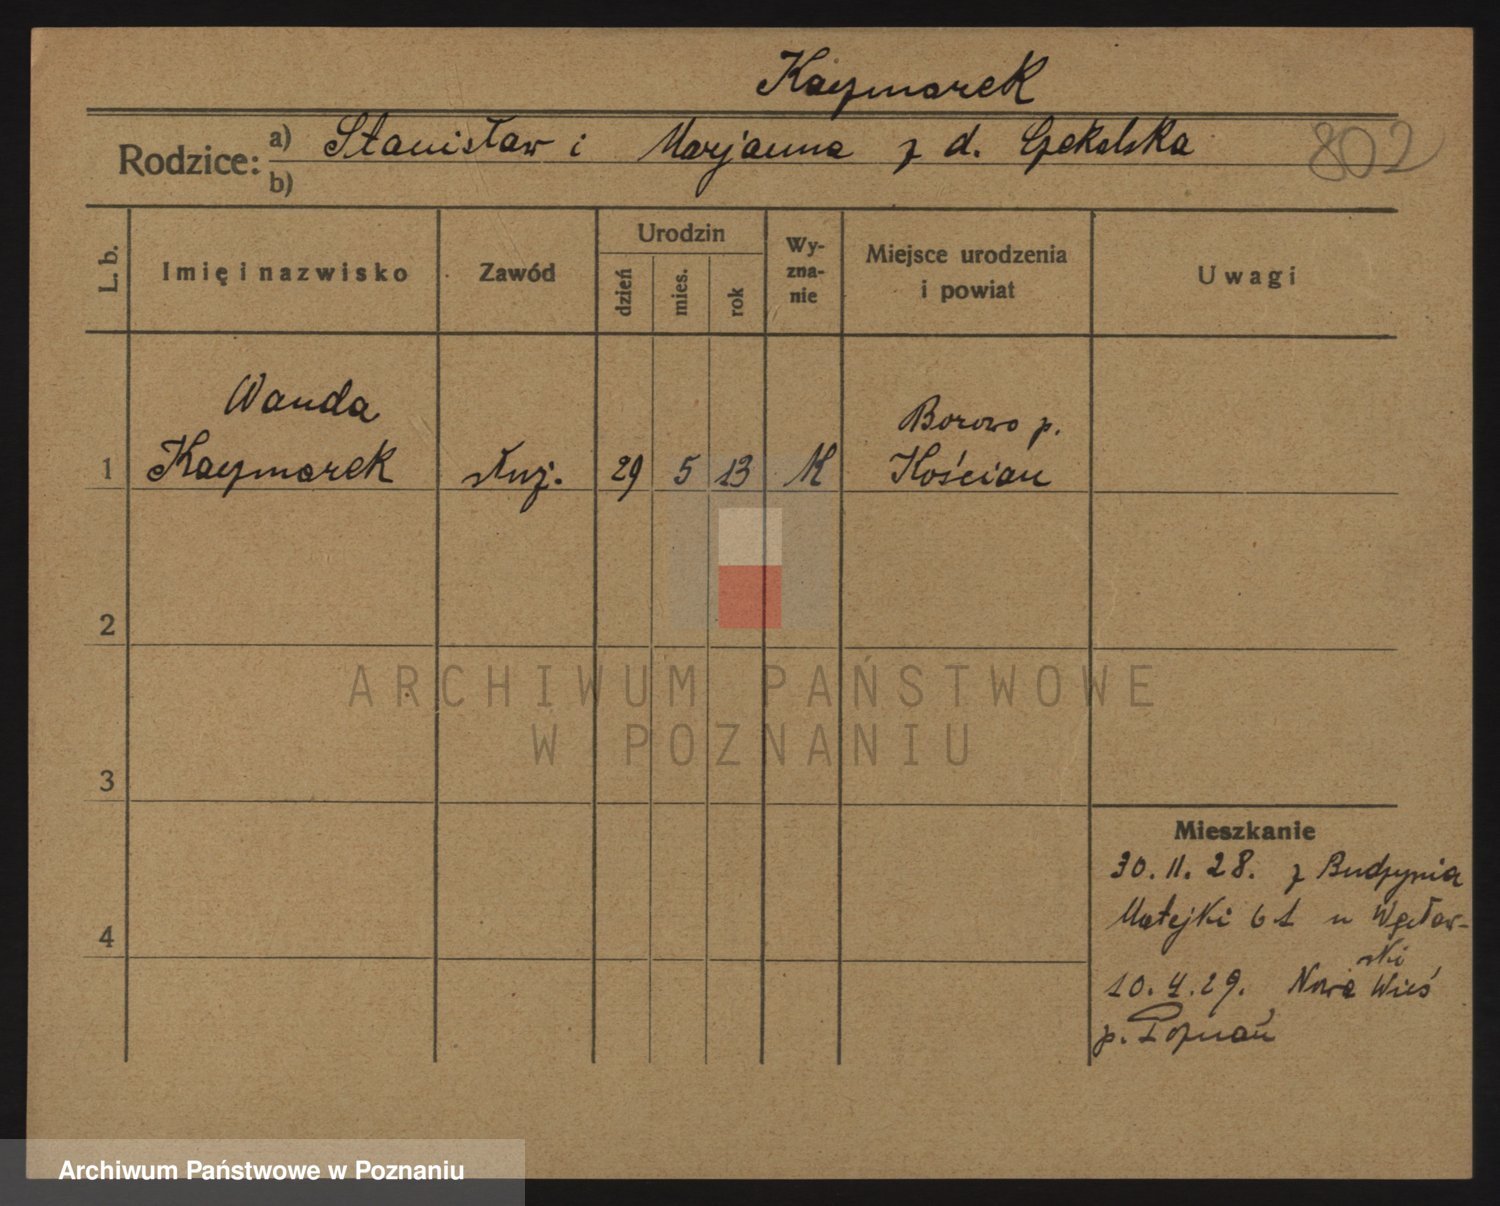 Kaczmarek
Rodzice: a) Stanisław i Marjanna z d. Czekalska
b)
802
L. b.
Imię i nazwisko
Zawód
Urodzin
dzień
mies.
rok
Wy-
zna-
nie
Miejsce urodzenia
i powiat
Uwagi
Wanda
1 Kaczmarek służ. 29 5 13 K Borowo p.
Kościan
2
3
4
Mieszkanie
30. 11. 28. z Budzynia
Matejki 61 u Węcław-
ski
10. 4. 29. Nowa Wieś
p. Poznań
ARCHIWUM PAŃSTWOWE
W POZNANIU
Archiwum Państwowe w Poznaniu